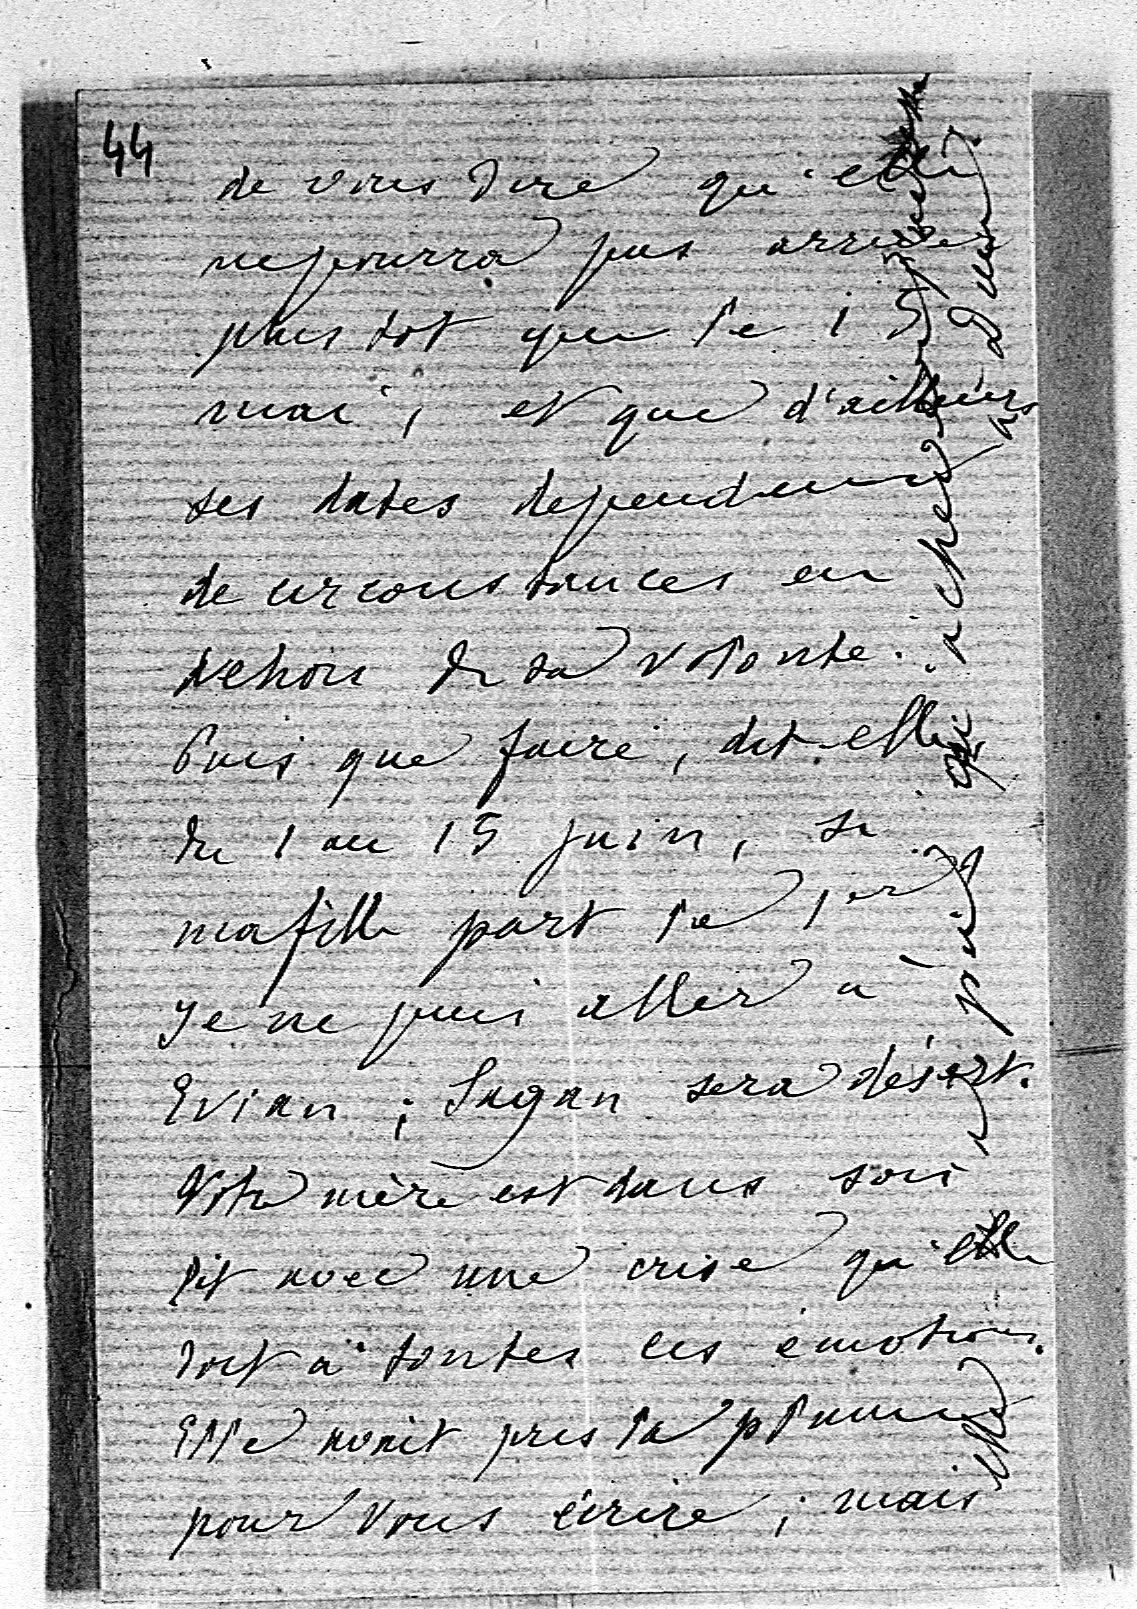 44
de vous dire qu'elle
ne pourra pas arriver
plus tot que le 15
mai, et que d'ailleurs
ses dates dependent
de circonstances en
dehors de sa volonte.
Puis que faire, dit-elle
du 1 au 15 juin, si
ma fille part le 1er
Je ne puis aller à
Evian ; Sagan sera désert.
Votre mère est dans son
lit avec une crise qu'elle
doit à toutes ces émotions.
Elle avait pris la plume
pour vous écrire ; mais
elle n'a pu qu'achever